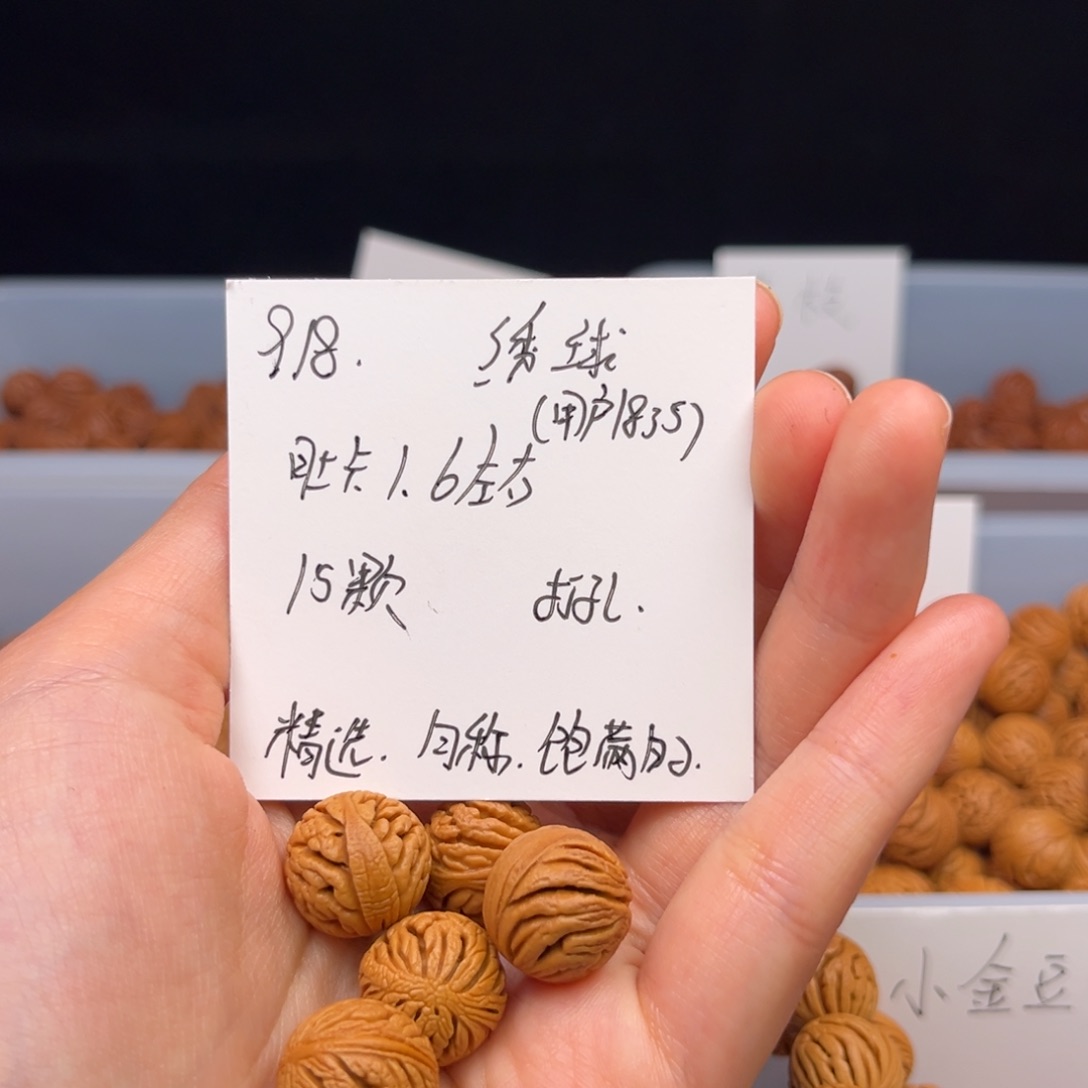 918. 绣球
(用户1835)
肚卡1.6左右
15颗 打孔.
精选. 匀称. 饱满的.
小金豆